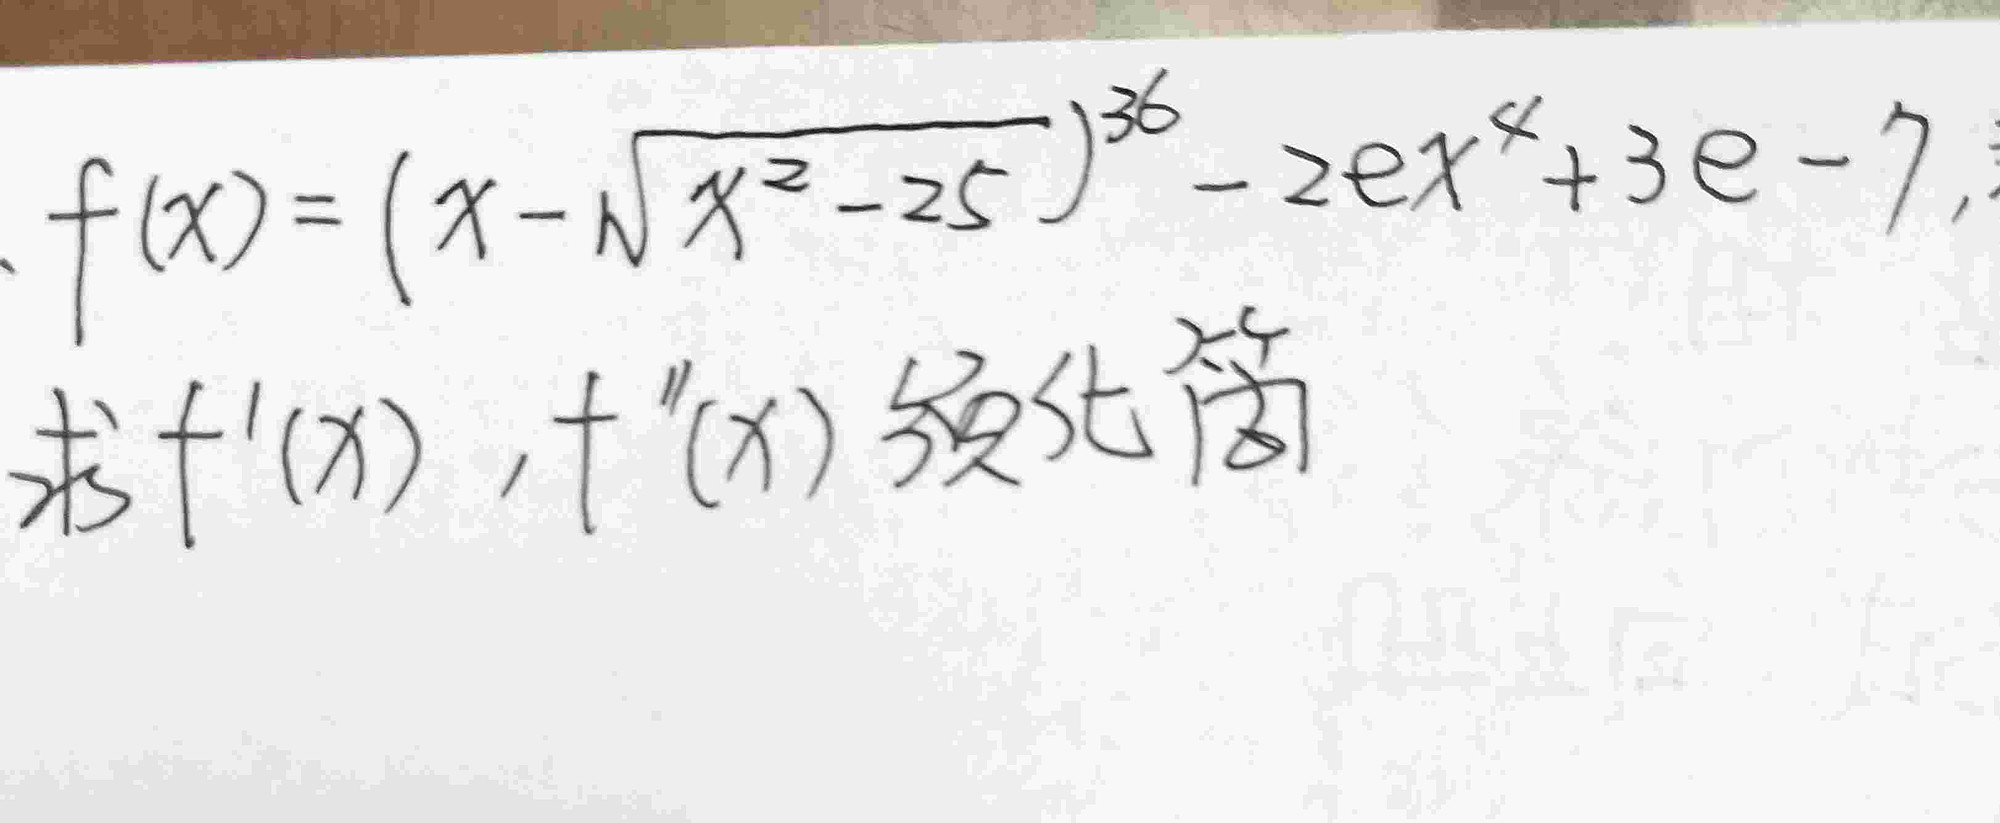 、f(x)=(x-√(x²-25))³⁶-2ex⁴+3e-7,
求f'(x),f''(x)须化简